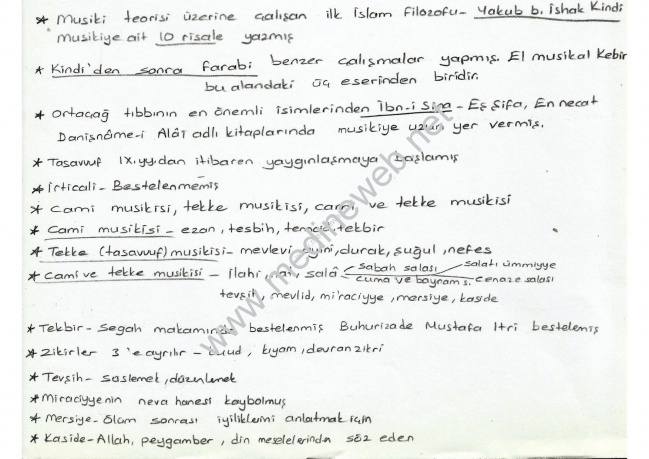 * Musiki teorisi üzerine çalışan ilk İslam filozofu - Yakub b. İshak Kindi
musikiye ait 10 risale yazmış
* Kindi'den sonra farabi benzer çalışmalar yapmış. El musikal Kebir
bu alandaki üç eserinden biridir.
* Ortaçağ tıbbının en önemli isimlerinden İbn-i Sina - Eş Şifa, En necat
Danişnâme-i Alâi adlı kitaplarında musikiye uzun yer vermiş.
* Tasavvuf IX.yy.dan itibaren yaygınlaşmaya başlamış
* İrticali - Bestelenmemiş
* Cami musikisi, tekke musikisi, cami ve tekke musikisi
* Cami musikisi - ezan, tesbih, temcit, tekbir
* Tekke (tasavvuf) musikisi - mevlevi ayini, durak, şuğul, nefes
* Cami ve tekke musikisi - ilahi, salâ sabah salası salatı ümmiyye
cuma ve bayram s. cenaze salası
tevşih, mevlid, mi'raciyye, mersiye, kaside
* Tekbir - Segah makamında bestelenmiş Buhurizade Mustafa Itri bestelemiş
* Zikirler 3'e ayrılır - kuud, kıyam, devran zikri
* Tevşih - süslemek, düzenlemek
* Miraciyyenin neva hanesi kaybolmuş
* Mersiye - ölüm sonrası iyiliklerini anlatmak için
* Kaside - Allah, peygamber, din meselelerinden söz eden
www.medineweb.net